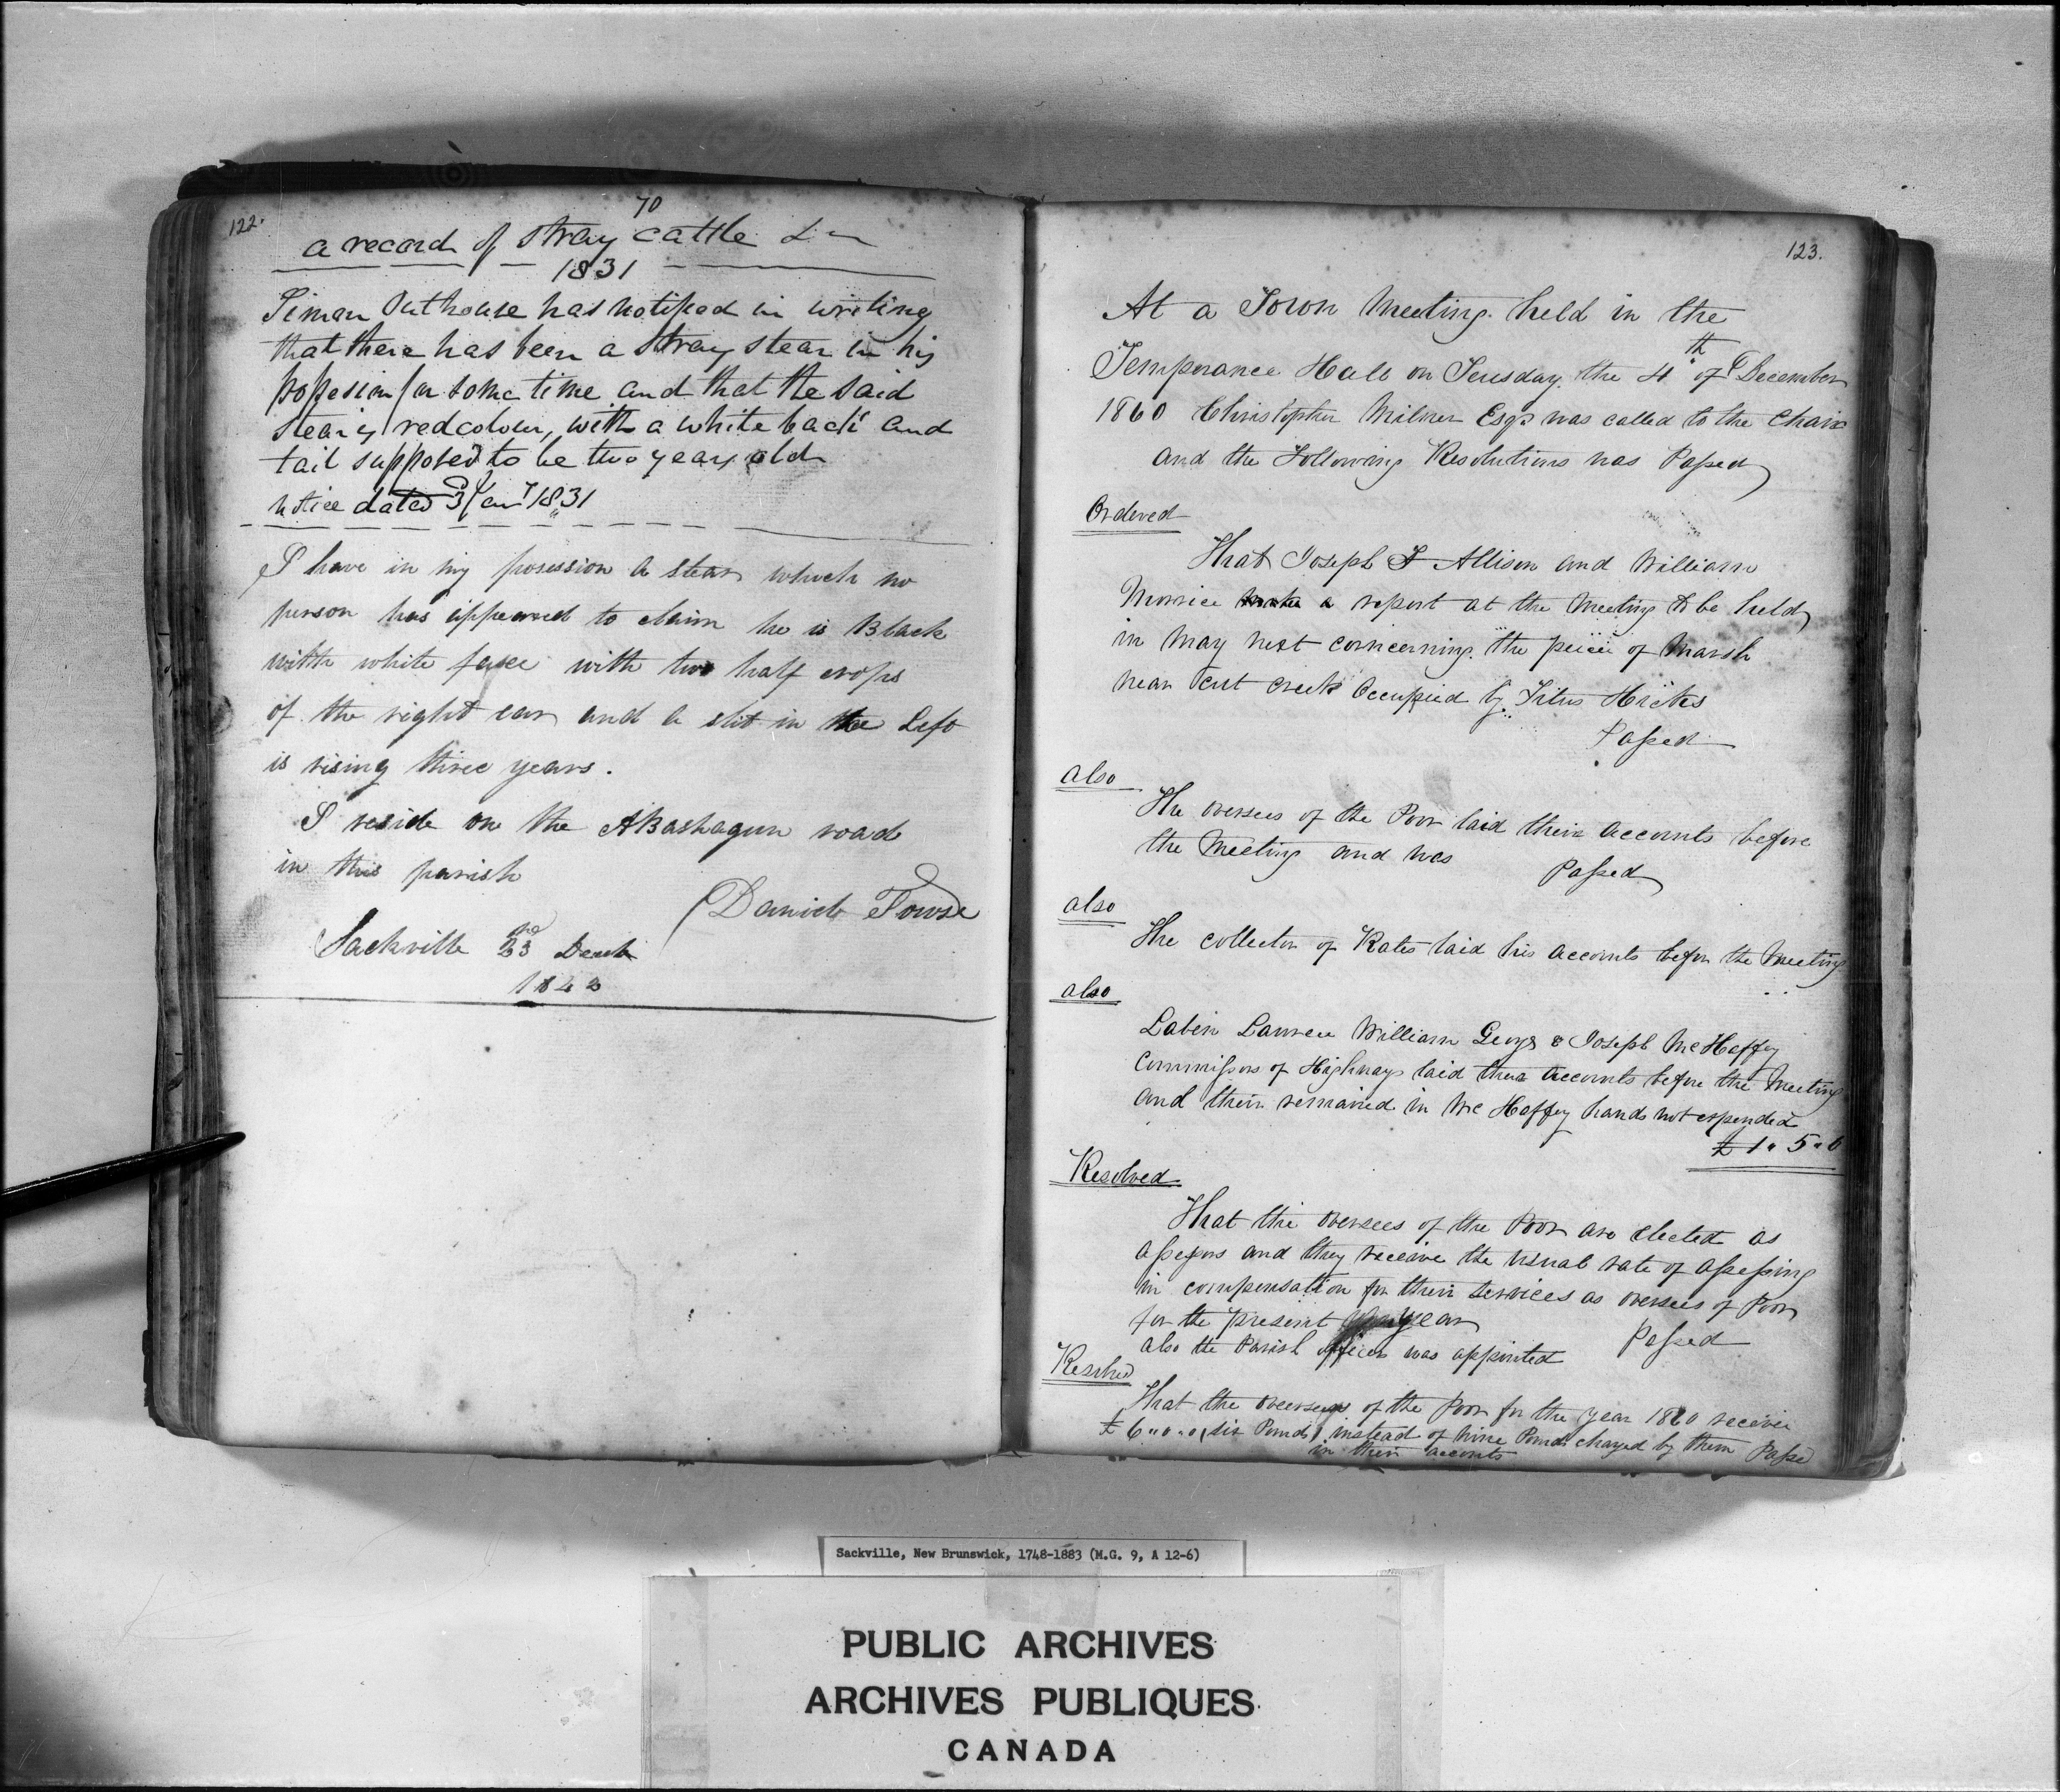 122.
70
a record of stray cattle &c
1831
Siman Outhouse has notified in writing
that there has been a stray stear in his
possesion for some time and that the said
stear is red colour, with a white back and
tail supposed to be two years old
notice dated 3 Jany 1831
I have in my posession a stear which no
person has appeared to claim he is Black
with white face with two half crops
of the right ear and a slit in the Left
is rising three years.
I reside on the Aboshagun road
in this parish
Daniel Towse
Sackville 23 Decmb
1842
123.
At a Town Meeting held in the
Temperance Hall on Tuesday the 4th of December
1860 Christopher Milner Esqr was called to the Chair
and the Following Resolutions was Passed
Ordered
That Joseph F Allison and William
Morice make a report at the Meeting to be held
in May next corncerning the peice of Marsh
near Cut Creek Occupied by Titus Hickes
Passed
also
The oversees of the Poor laid their accounts before
the Meeting and was Passed
also
The collector of Rates laid his accounts before the Meeting
also
Labin Lawrece William George & Joseph McHaffey
Commissors of Highways laid their Accounts before the Meeting
and their remained in Mc Haffey hands not expended
£1"5"6
Resolved
That the oversees of the Poor are elected as
assessors and they receive the usual rate of assessing
in compensation for their services as oversees of Poor
for the present year
Passed
also the Parish officers was appointed
Resolved
That the overseers of the Poor for the year 1860 receive
£6"0"0 (six Pounds) instead of nine Pounds charged by them Passed
in their accounts
Sackville, New Brunswick, 1748-1883 (M.G. 9, A 12-6)
PUBLIC ARCHIVES
ARCHIVES PUBLIQUES
CANADA